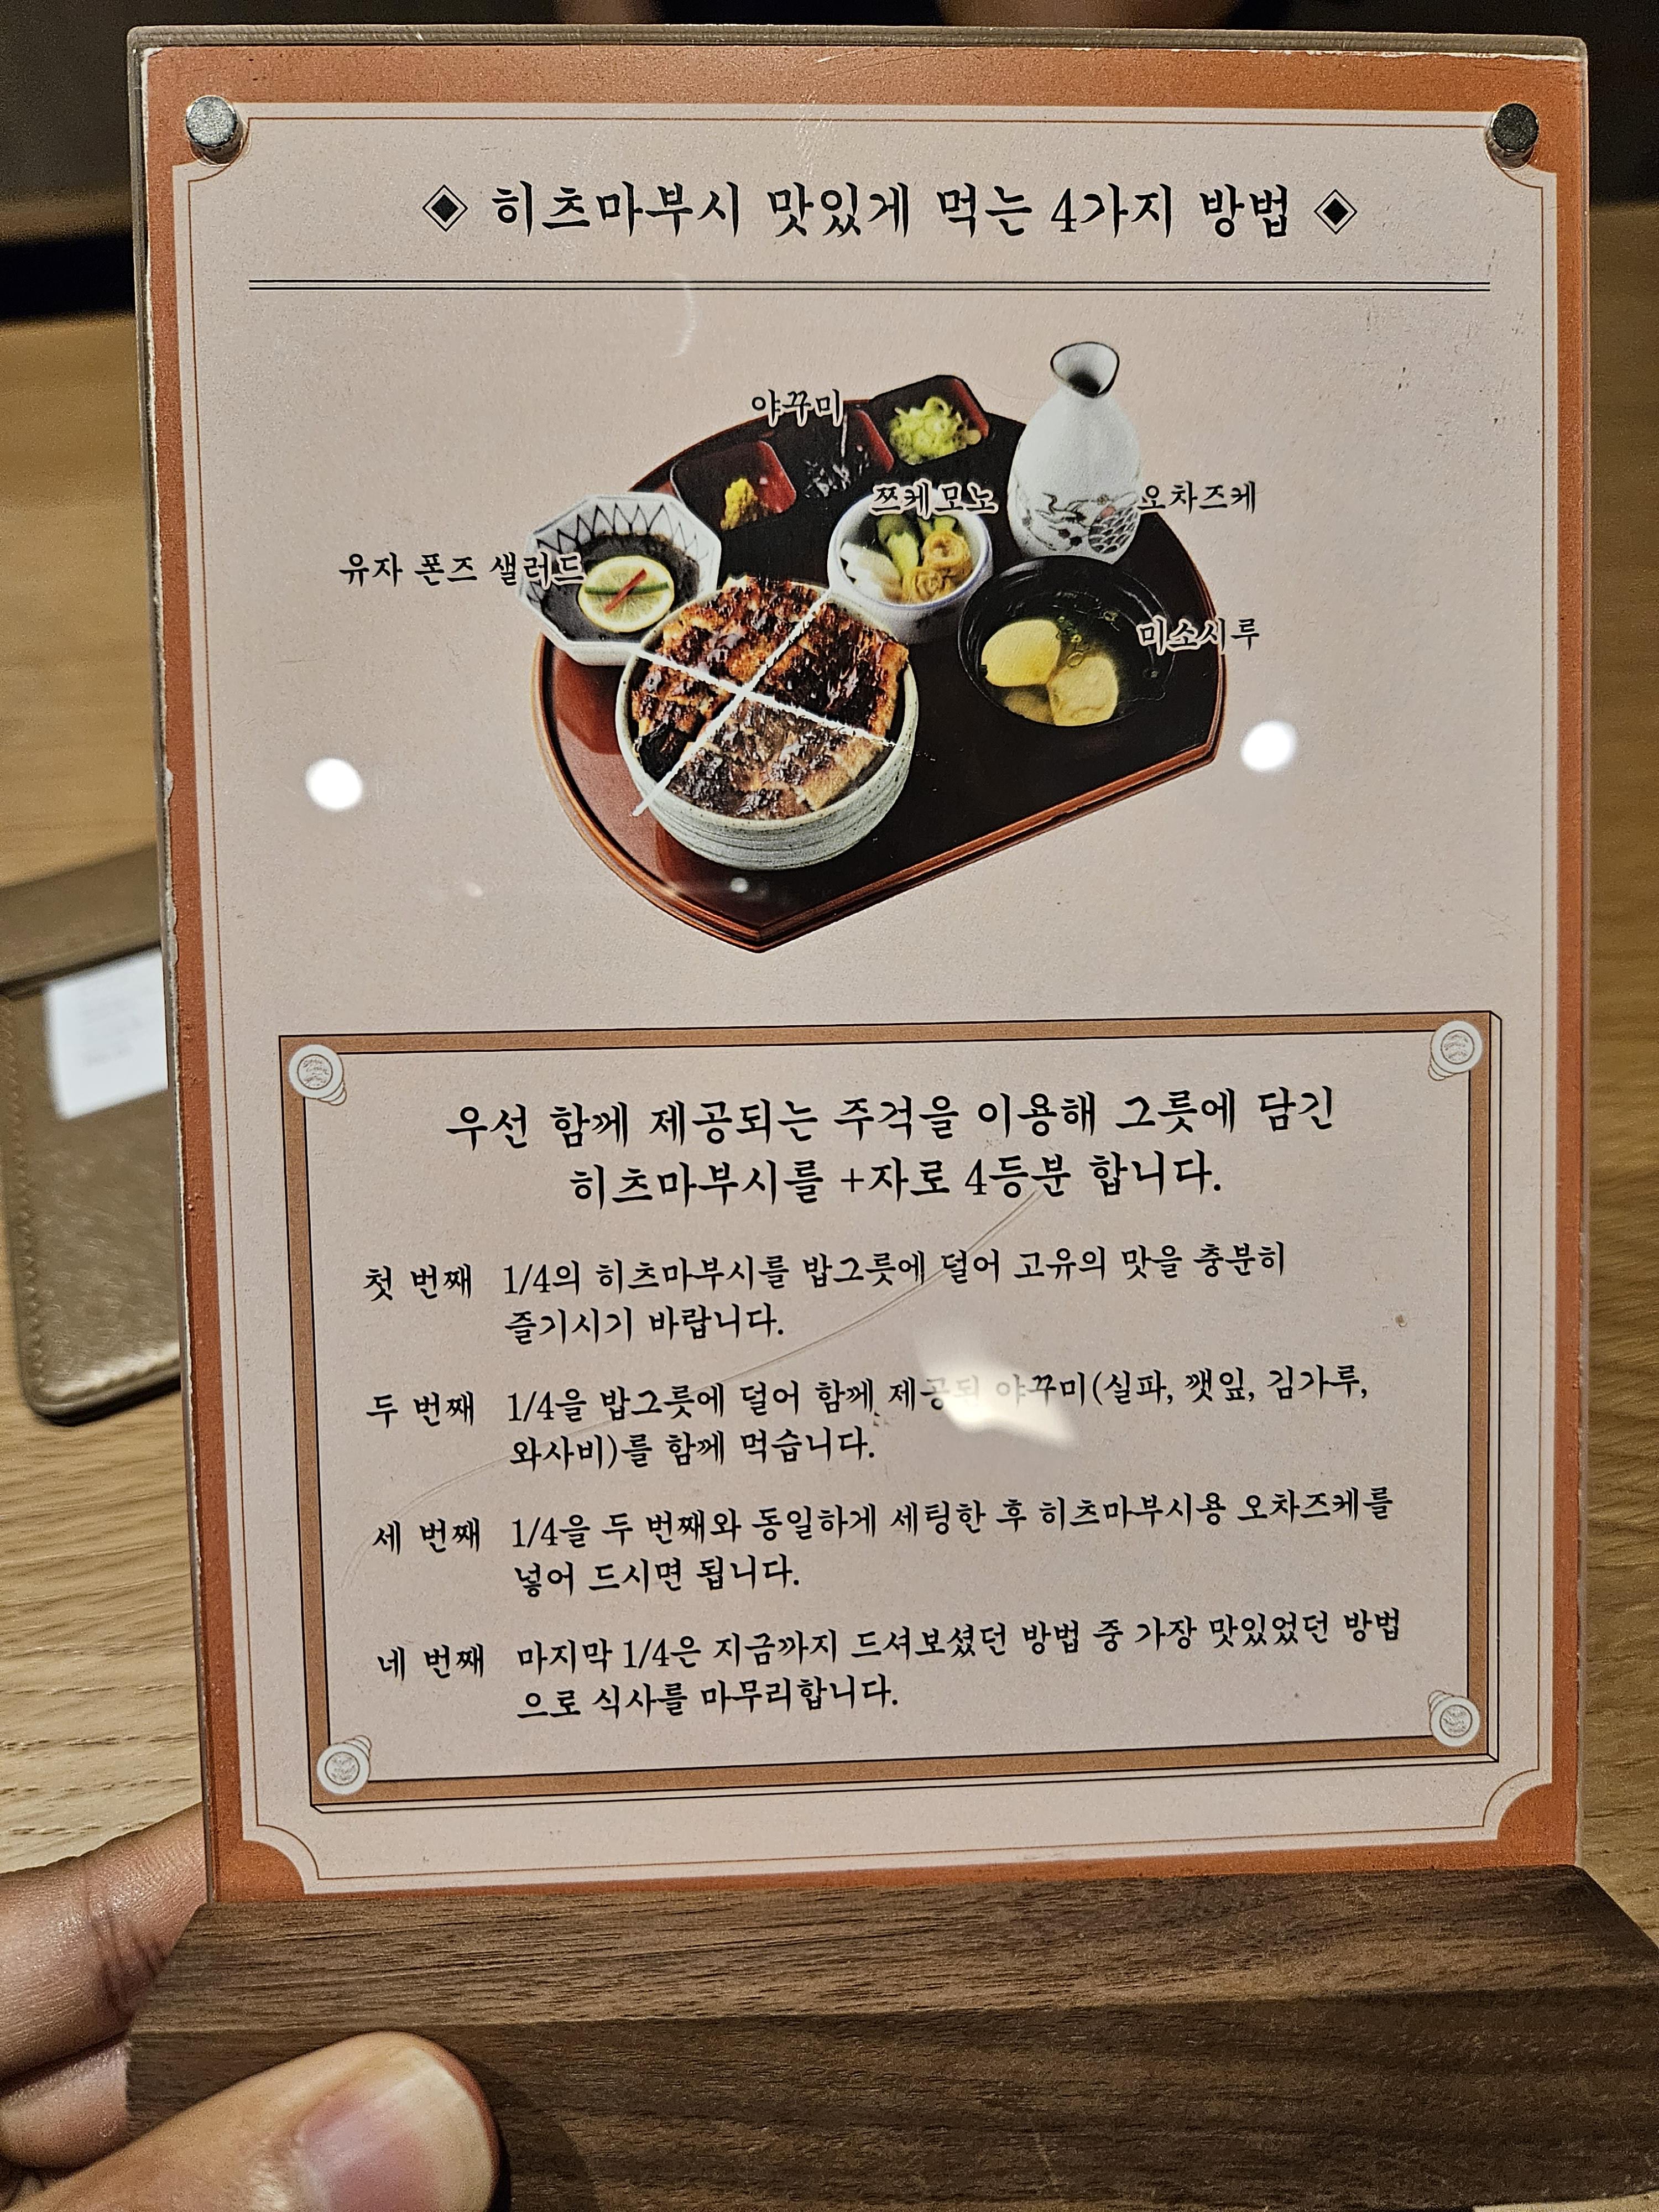 ◈ 히츠마부시 맛있게 먹는 4가지 방법 ◈
야꾸미
쯔케모노
오차즈케
유자 폰즈 샐러드
미소시루
우선 함께 제공되는 주걱을 이용해 그릇에 담긴
히츠마부시를 +자로 4등분 합니다.
첫 번째 1/4의 히츠마부시를 밥그릇에 덜어 고유의 맛을 충분히
즐기시기 바랍니다.
두 번째 1/4을 밥그릇에 덜어 함께 제공된 야꾸미(실파, 깻잎, 김가루,
와사비)를 함께 먹습니다.
세 번째 1/4을 두 번째와 동일하게 세팅한 후 히츠마부시용 오차즈케를
넣어 드시면 됩니다.
네 번째 마지막 1/4은 지금까지 드셔보셨던 방법 중 가장 맛있었던 방법
으로 식사를 마무리합니다.